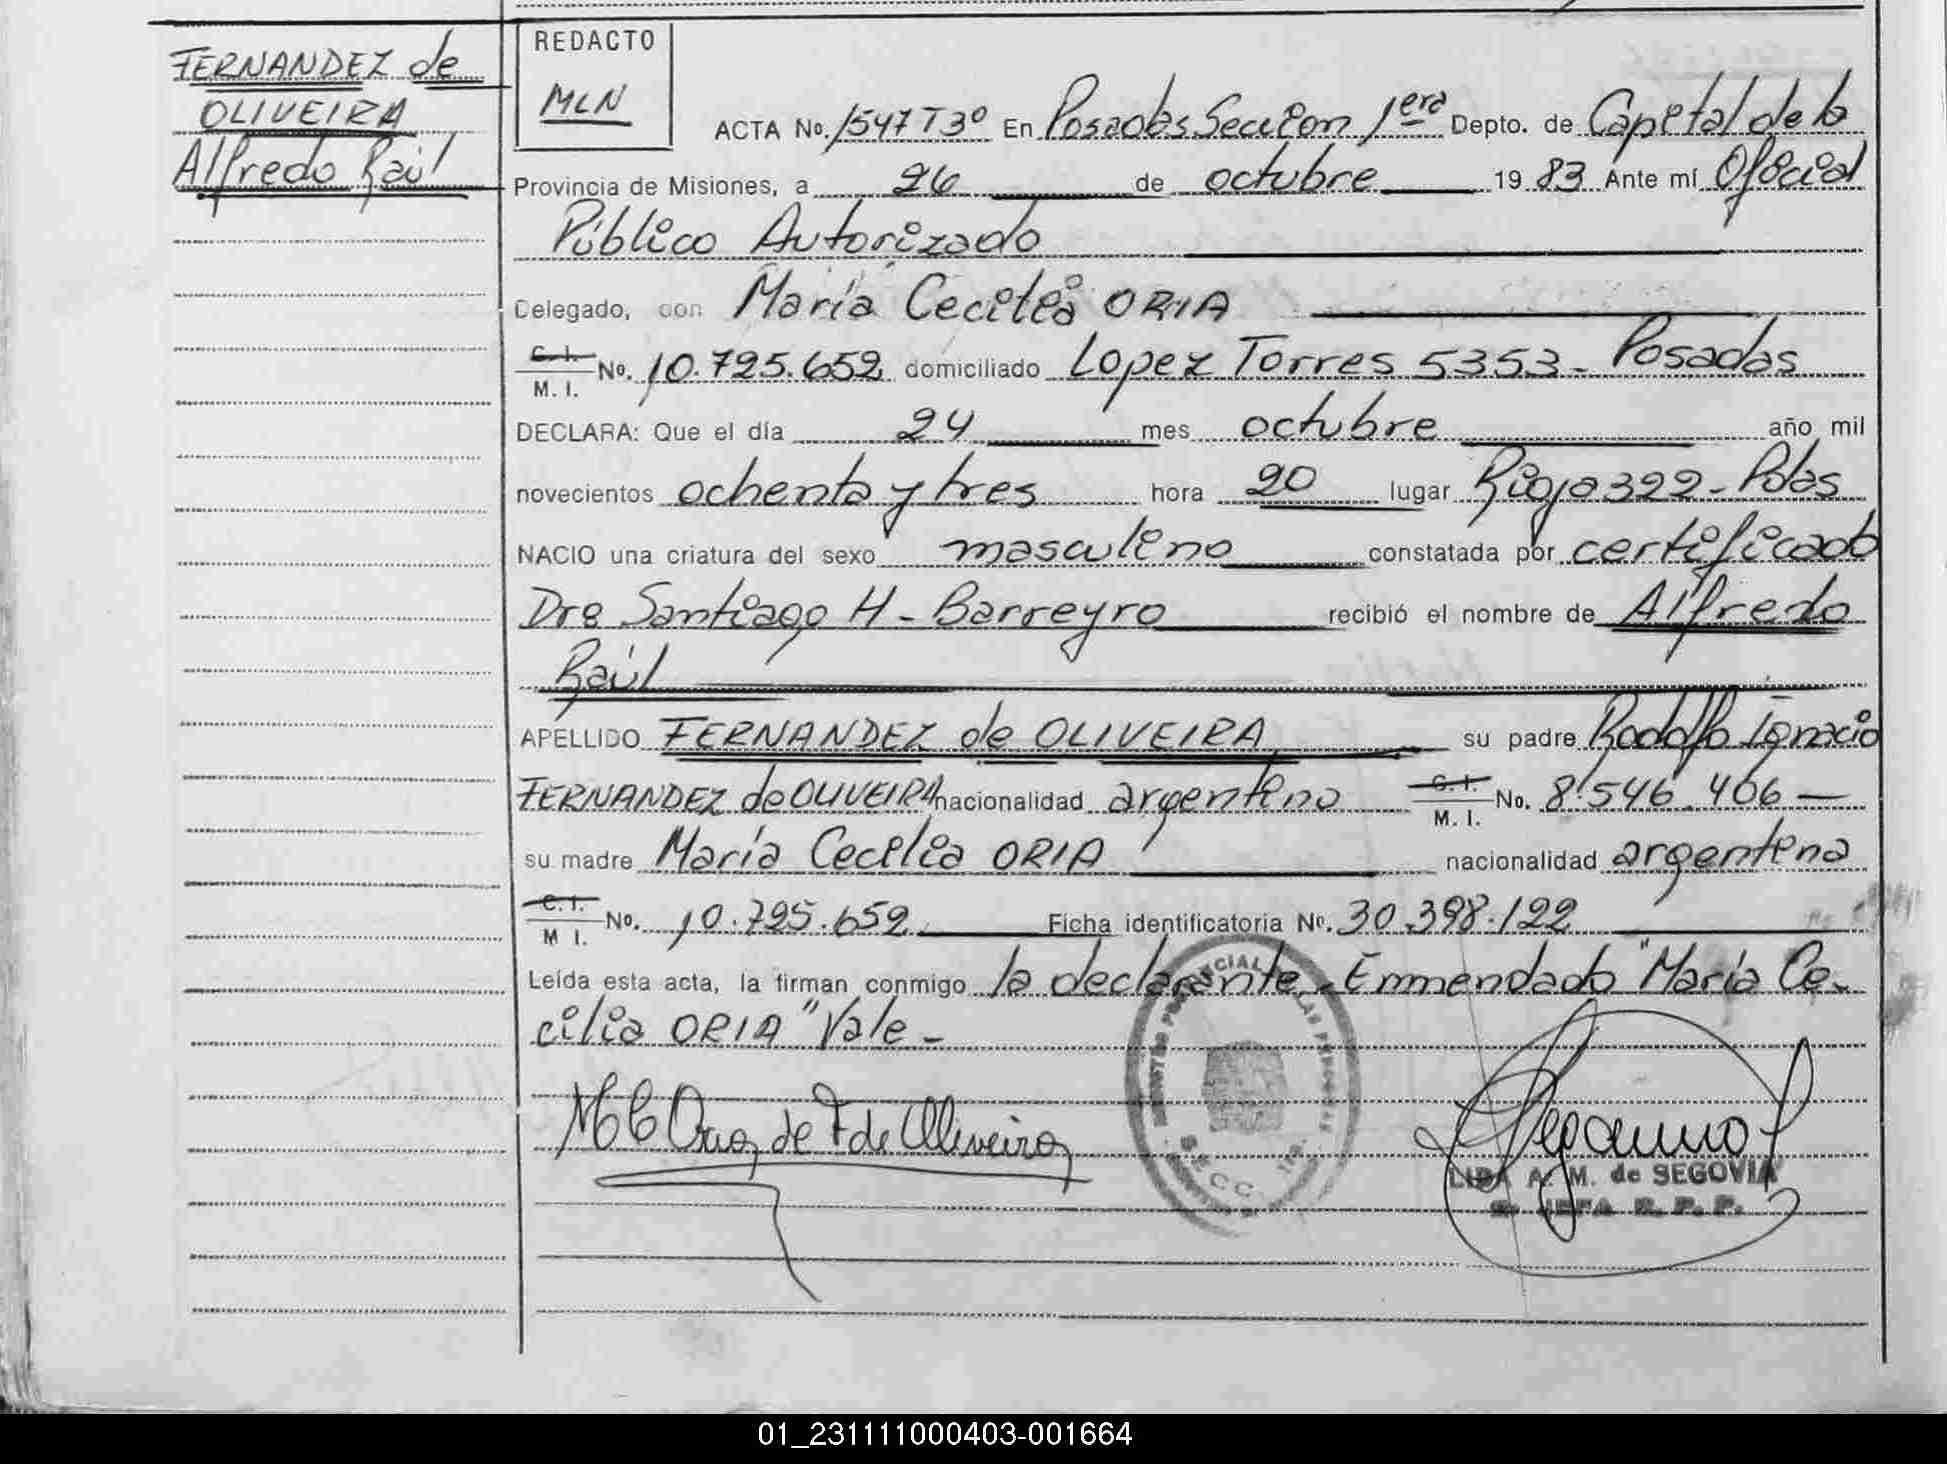 FERNANDEZ de
OLIVEIRA
Alfredo Raúl
REDACTO
MLN
ACTA No. 1547 T 3º En Posadas Seccion 1era Depto. de Capital de la
Provincia de Misiones, a 26 de octubre 1983 Ante mí Oficial
Público Autorizado
Delegado, con María Cecilia ORIA
C. I. M. I. No. 10.725.652 domiciliado Lopez Torres 5353 - Posadas
DECLARA: Que el día 24 mes octubre año mil
novecientos ochenta y tres hora 20 lugar Rioja 322 - Pdas
NACIO una criatura del sexo masculino constatada por certificado
Dr. Santiago H. Barreyro recibió el nombre de Alfredo
Raúl
APELLIDO FERNANDEZ de OLIVEIRA su padre Rodolfo Ignacio
FERNANDEZ de OLIVEIRA nacionalidad argentino C. I. M. I. No. 8.546.406
su madre María Cecilia ORIA nacionalidad argentina
C. I. M. I. No. 10.725.652 Ficha identificatoria Nº. 30.398.122
Leída esta acta, la firman conmigo la declarante - Enmendado "María Ce-
cilia ORIA" Vale -
M C Oria de F de Oliveira
SECC. 1ra.
LIDA A. M. de SEGOVIA
JEFA R. P. P.
01_231111000403-001664